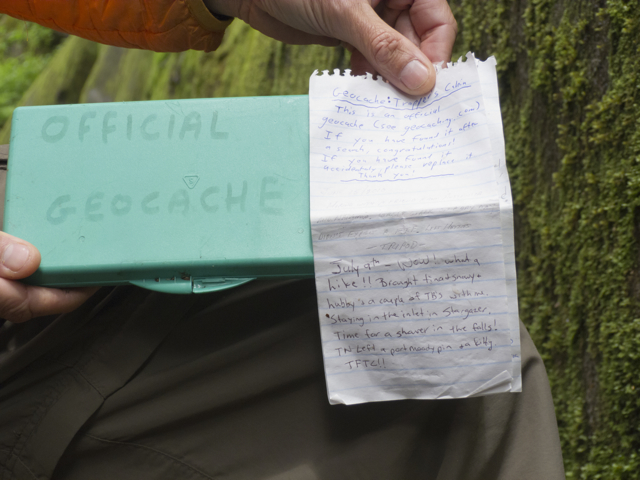 OFFICIAL
GEOCACHE
Geocache: Trapper's Cabin
This is an official
geocache (see geocaching.com)
If you have found it after
a search, congratulations!
If you have found it
please replace it
Thank you!
July 9th - Wow! what a
hike!! Brought
hubby & a couple of TBs with me.
Staying in the inlet in Stargazer.
Time for a shower in the falls!
TN Left a port moody pin on
TFTC!!